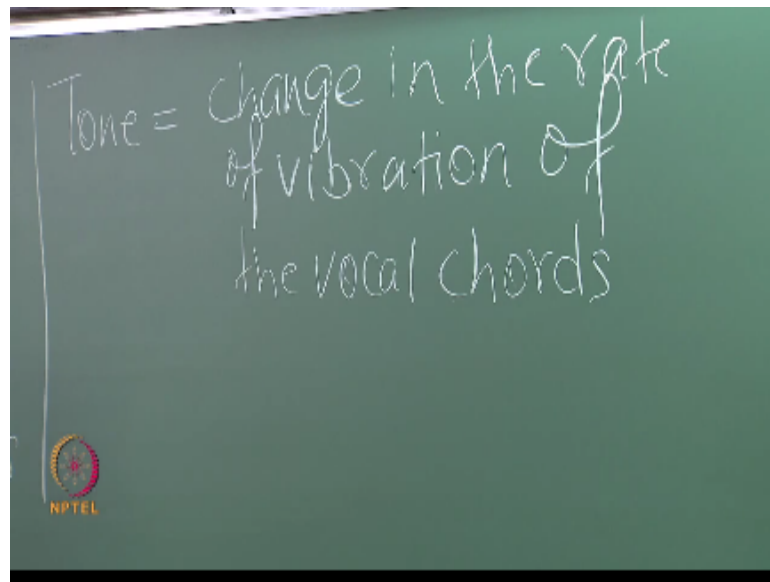 Tone = change in the rate
of vibration of
the vocal chords
NPTEL